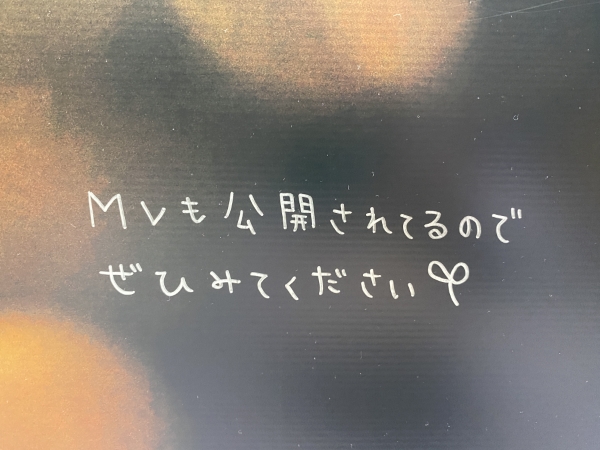 MVも公開されてるので
ぜひみてください♡